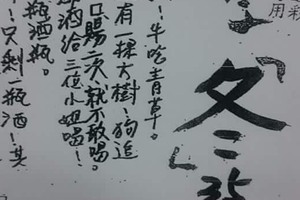 用
「冬
！牛吃青草。
有一棵大樹！狗追
就不敢喝。
酒給三位小姐喝！
瓶酒瓶。
！只剩一瓶酒！其